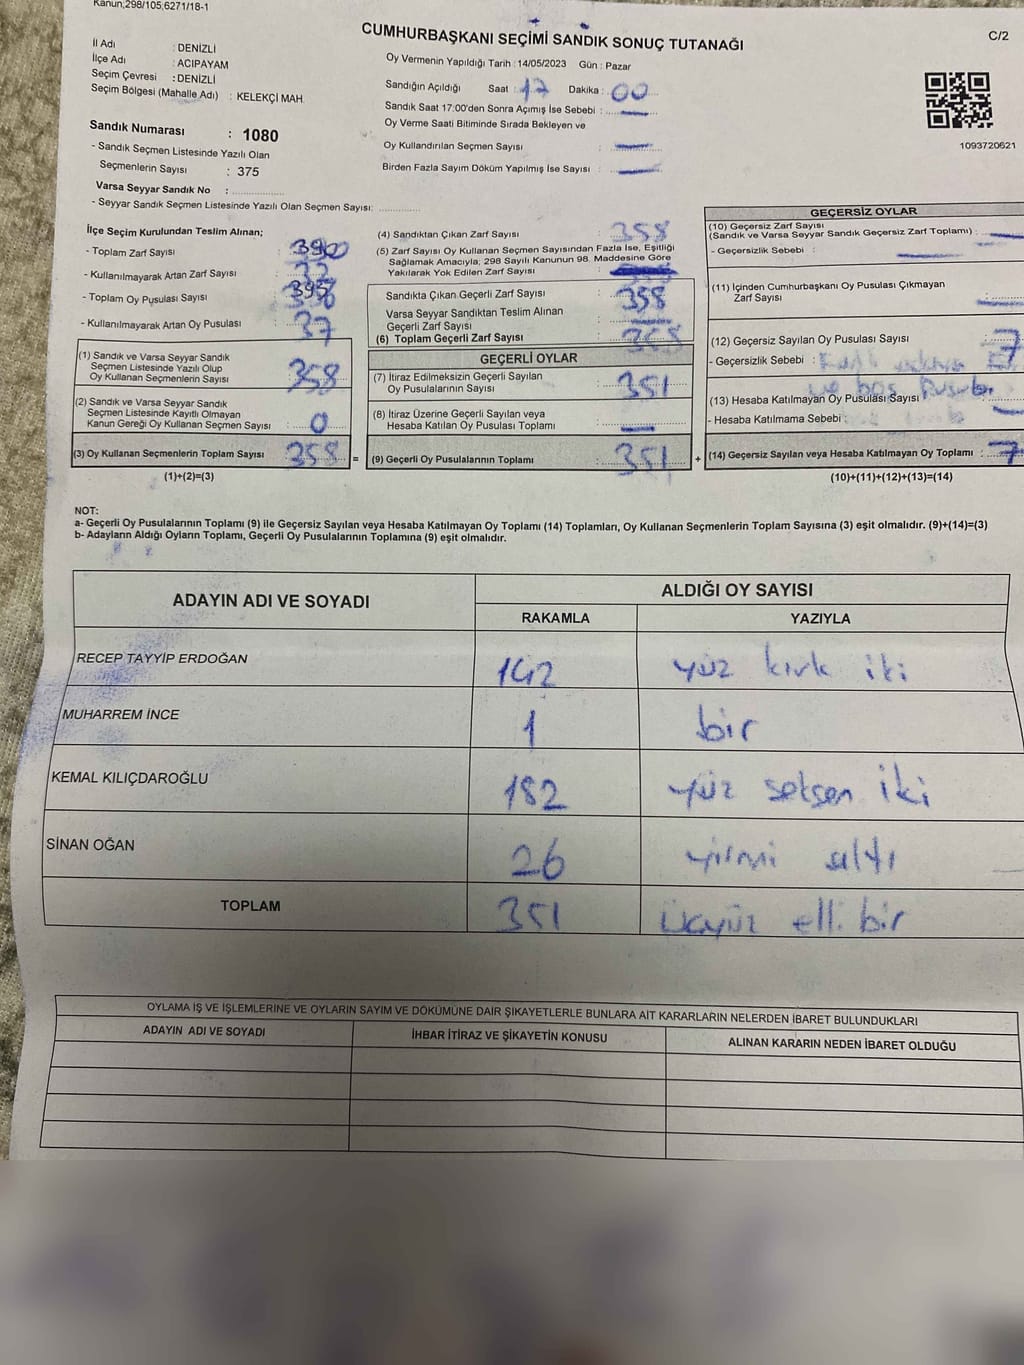 Kanun,298/105,6271/18-1
CUMHURBAŞKANI SEÇİMİ SANDIK SONUÇ TUTANAĞI
C/2
İl Adı : DENİZLİ
İlçe Adı : ACIPAYAM
Seçim Çevresi : DENİZLİ
Seçim Bölgesi (Mahalle Adı) : KELEKÇİ MAH.
Oy Vermenin Yapıldığı Tarih : 14/05/2023 Gün : Pazar
Sandığın Açıldığı Saat : 17 Dakika : 00
Sandık Saat 17:00'den Sonra Açımış İse Sebebi : —
Oy Verme Saati Bitiminde Sırada Bekleyen ve
Oy Kullandırılan Seçmen Sayısı : —
Birden Fazla Sayım Döküm Yapılmış İse Sayısı : —
1093720621
Sandık Numarası : 1080
- Sandık Seçmen Listesinde Yazılı Olan
Seçmenlerin Sayısı : 375
Varsa Seyyar Sandık No :
- Seyyar Sandık Seçmen Listesinde Yazılı Olan Seçmen Sayısı:
İlçe Seçim Kurulundan Teslim Alınan;
- Toplam Zarf Sayısı
- Kullanılmayarak Artan Zarf Sayısı
- Toplam Oy Pusulası Sayısı
- Kullanılmayarak Artan Oy Pusulası : 37
(1) Sandık ve Varsa Seyyar Sandık
Seçmen Listesinde Yazılı Olup
Oy Kullanan Seçmenlerin Sayısı : 358
(2) Sandık ve Varsa Seyyar Sandık
Seçmen Listesinde Kayıtlı Olmayan
Kanun Gereği Oy Kullanan Seçmen Sayısı : 0
(3) Oy Kullanan Seçmenlerin Toplam Sayısı : 358
(1)+(2)=(3)
=
(4) Sandıktan Çıkan Zarf Sayısı : 358
(5) Zarf Sayısı Oy Kullanan Seçmen Sayısından Fazla İse, Eşitliği
Sağlamak Amacıyla; 298 Sayılı Kanunun 98. Maddesine Göre
Yakılarak Yok Edilen Zarf Sayısı :
Sandıkta Çıkan Geçerli Zarf Sayısı : 358
Varsa Seyyar Sandıktan Teslim Alınan
Geçerli Zarf Sayısı : —
(6) Toplam Geçerli Zarf Sayısı : 358
GEÇERLİ OYLAR
(7) İtiraz Edilmeksizin Geçerli Sayılan
Oy Pusulalarının Sayısı : 351
(8) İtiraz Üzerine Geçerli Sayılan veya
Hesaba Katılan Oy Pusulası Toplamı : —
(9) Geçerli Oy Pusulalarının Toplamı : 351
+
GEÇERSİZ OYLAR
(10) Geçersiz Zarf Sayısı
(Sandık ve Varsa Seyyar Sandık Geçersiz Zarf Toplamı) : —
- Geçersizlik Sebebi : —
(11) İçinden Cumhurbaşkanı Oy Pusulası Çıkmayan
Zarf Sayısı : —
(12) Geçersiz Sayılan Oy Pusulası Sayısı : 7
- Geçersizlik Sebebi :
ve boş
(13) Hesaba Katılmayan Oy Pusulası Sayısı : —
- Hesaba Katılmama Sebebi :
(14) Geçersiz Sayılan veya Hesaba Katılmayan Oy Toplamı : 7
(10)+(11)+(12)+(13)=(14)
NOT:
a- Geçerli Oy Pusulalarının Toplamı (9) ile Geçersiz Sayılan veya Hesaba Katılmayan Oy Toplamı (14) Toplamları, Oy Kullanan Seçmenlerin Toplam Sayısına (3) eşit olmalıdır. (9)+(14)=(3)
b- Adayların Aldığı Oyların Toplamı, Geçerli Oy Pusulalarının Toplamına (9) eşit olmalıdır.
ADAYIN ADI VE SOYADI
ALDIĞI OY SAYISI
RAKAMLA YAZIYLA
RECEP TAYYİP ERDOĞAN 142 yüz kırk iki
MUHARREM İNCE 1 bir
KEMAL KILIÇDAROĞLU 182 yüz seksen iki
SİNAN OĞAN 26 yirmi altı
TOPLAM 351 üçyüz elli bir
OYLAMA İŞ VE İŞLEMLERİNE VE OYLARIN SAYIM VE DÖKÜMÜNE DAİR ŞİKAYETLERLE BUNLARA AİT KARARLARIN NELERDEN İBARET BULUNDUKLARI
ADAYIN ADI VE SOYADI İHBAR İTİRAZ VE ŞİKAYETİN KONUSU ALINAN KARARIN NEDEN İBARET OLDUĞU